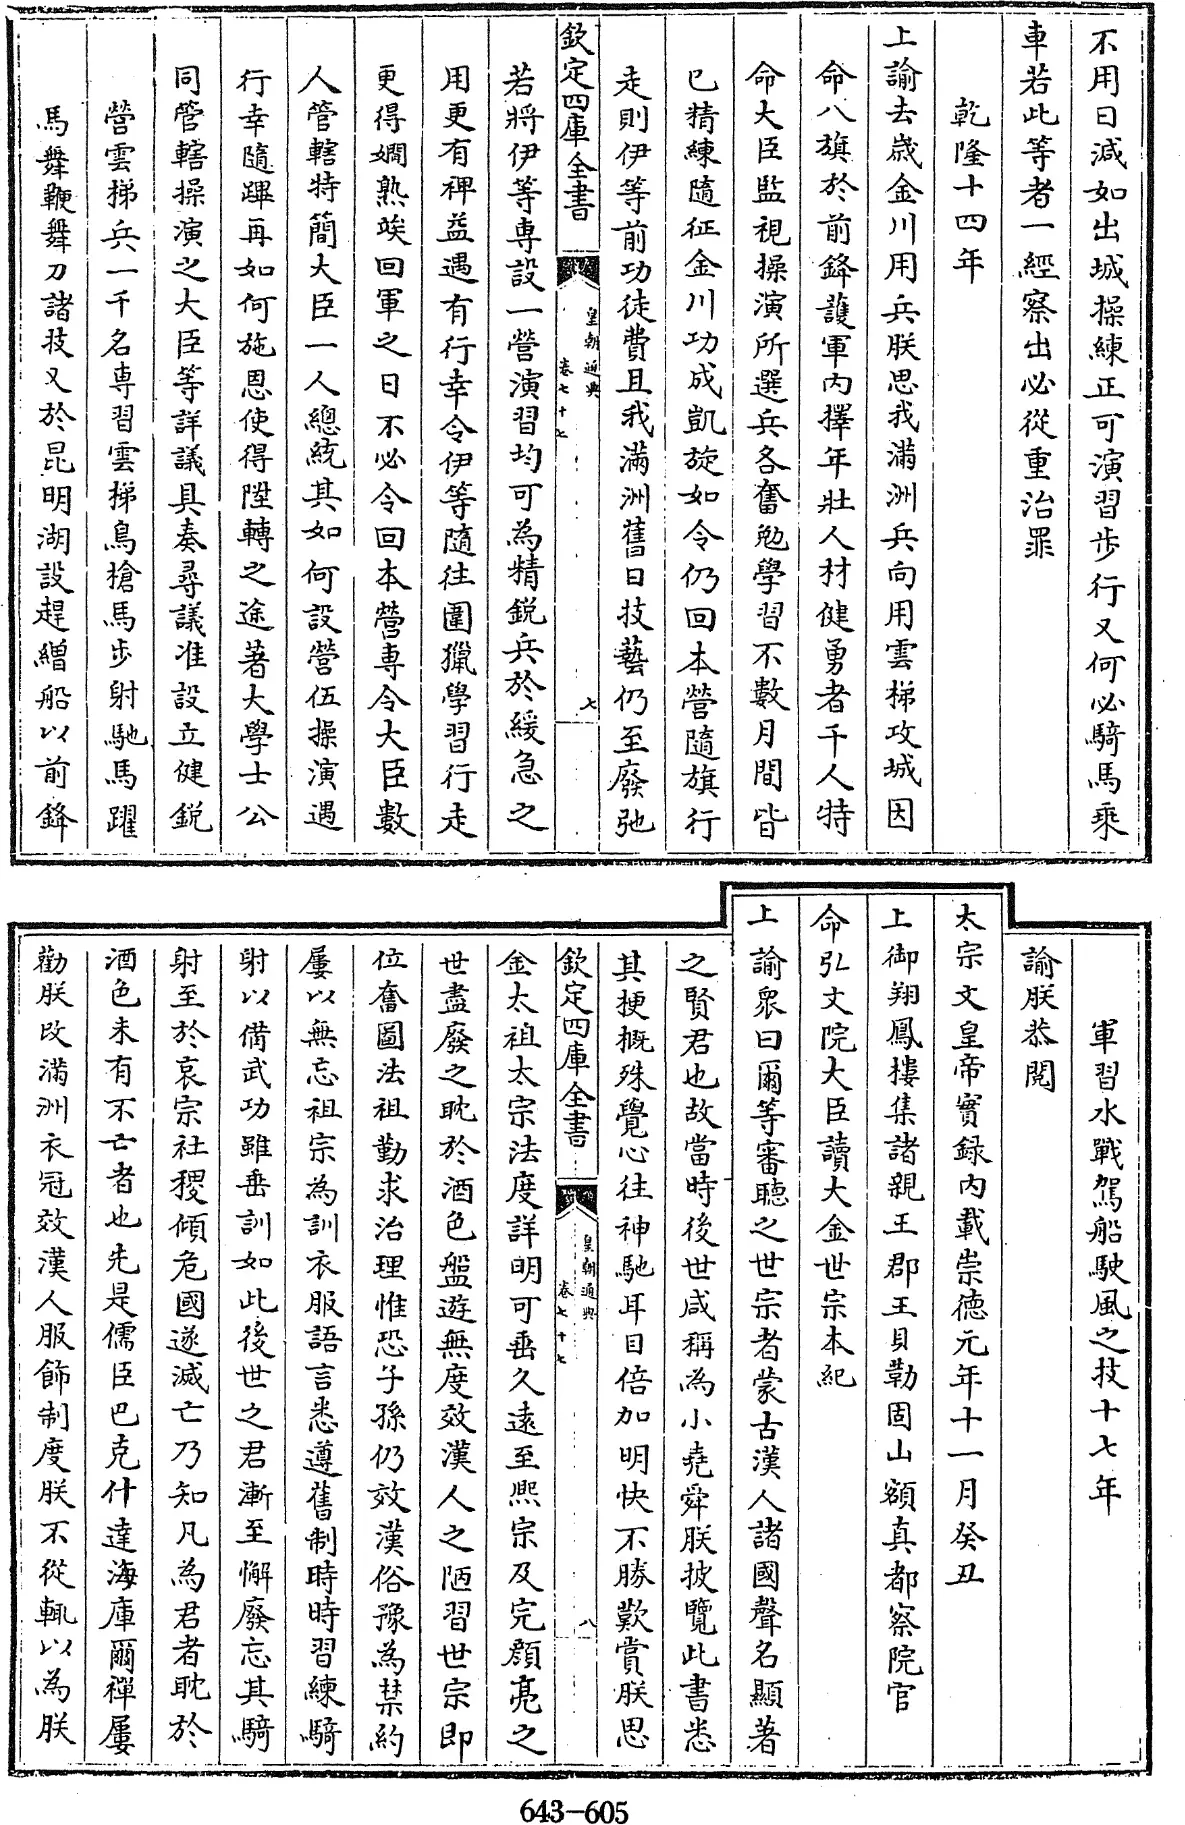 不用曰減如出城操練正可演習步行又何必騎馬乘
車若此等者一經察出必從重治罪
乾隆十四年
上諭去歲金川用兵朕思我滿洲兵向用雲梯攻城因
命八旗於前鋒護軍內擇年壯人材健勇者千人特
命大臣監視操演所選兵各奮勉學習不數月間皆
已精練隨征金川功成凱旋如令仍回本營隨旗行
走則伊等前功徒費且我滿洲舊日技藝仍至廢弛
欽定四庫全書
皇朝通典
卷七十七
七
若將伊等專設一營演習均可為精銳兵於緩急之
用更有裨益遇有行幸令伊等隨往圍獵學習行走
更得嫻熟竢回軍之日不必令回本營專令大臣數
人管轄特簡大臣一人總統其如何設營伍操演遇
行幸隨蹕再如何施恩使得陞轉之途著大學士公
同管轄操演之大臣等詳議具奏尋議准設立健銳
營雲梯兵一千名專習雲梯鳥槍馬步射馳馬躍
馬舞鞭舞刀諸技又於昆明湖設趕繒船以前鋒
軍習水戰駕船駛風之技十七年
諭朕恭閱
太宗文皇帝實錄內載崇德元年十一月癸丑
上御翔鳳樓集諸親王郡王貝勒固山額真都察院官
命弘文院大臣讀大金世宗本紀
上諭眾曰爾等審聽之世宗者蒙古漢人諸國聲名顯著
之賢君也故當時後世咸稱為小堯舜朕披覽此書悉
其梗概殊覺心往神馳耳目倍加明快不勝歎賞朕思
欽定四庫全書
皇朝通典
卷七十七
八
金太祖太宗法度詳明可垂久遠至熙宗及完顏亮之
世盡廢之耽於酒色盤遊無度效漢人之陋習世宗即
位奮圖法祖勤求治理惟恐子孫仍效漢俗豫為禁約
屢以無忘祖宗為訓衣服語言悉遵舊制時時習練騎
射以備武功雖垂訓如此後世之君漸至懈廢忘其騎
射至於哀宗社稷傾危國遂滅亡乃知凡為君者耽於
酒色未有不亡者也先是儒臣巴克什達海庫爾禪屢
勸朕改滿洲衣冠效漢人服飾制度朕不從輒以為朕
643-605